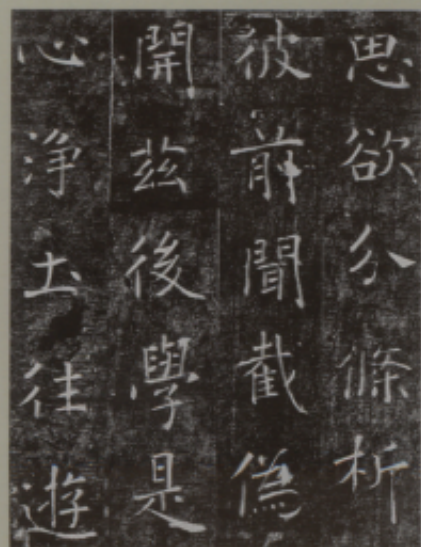 思欲分條析
彼前聞截偽
開茲後學是
心淨土往遊